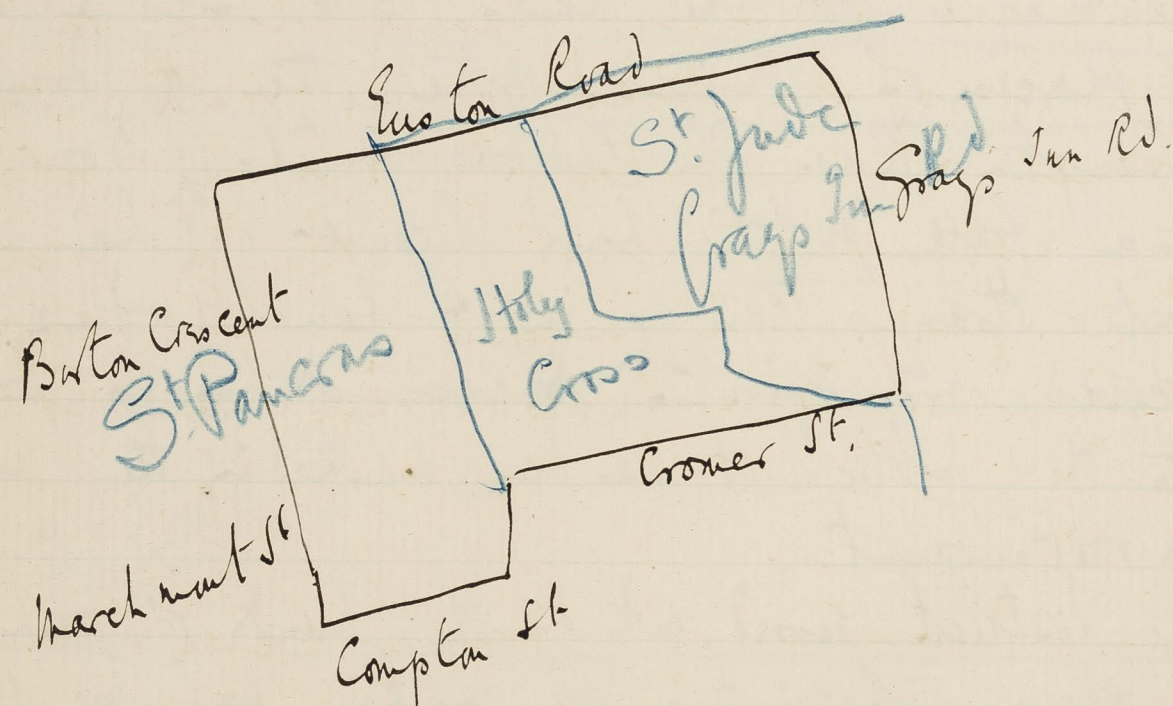 Euston Road
St. Jude
Grays Inn Rd
Grays Inn Rd.
Burton Crescent
St. Pancras
Holy
Cross
Cromer St.
Marchmont St
Compton St